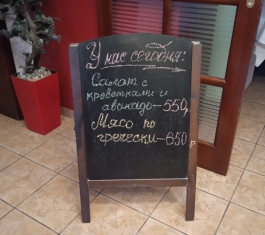 У нас сегодня:
Салат с
креветками и
авокадо-550р
Мясо по
гречески-650р